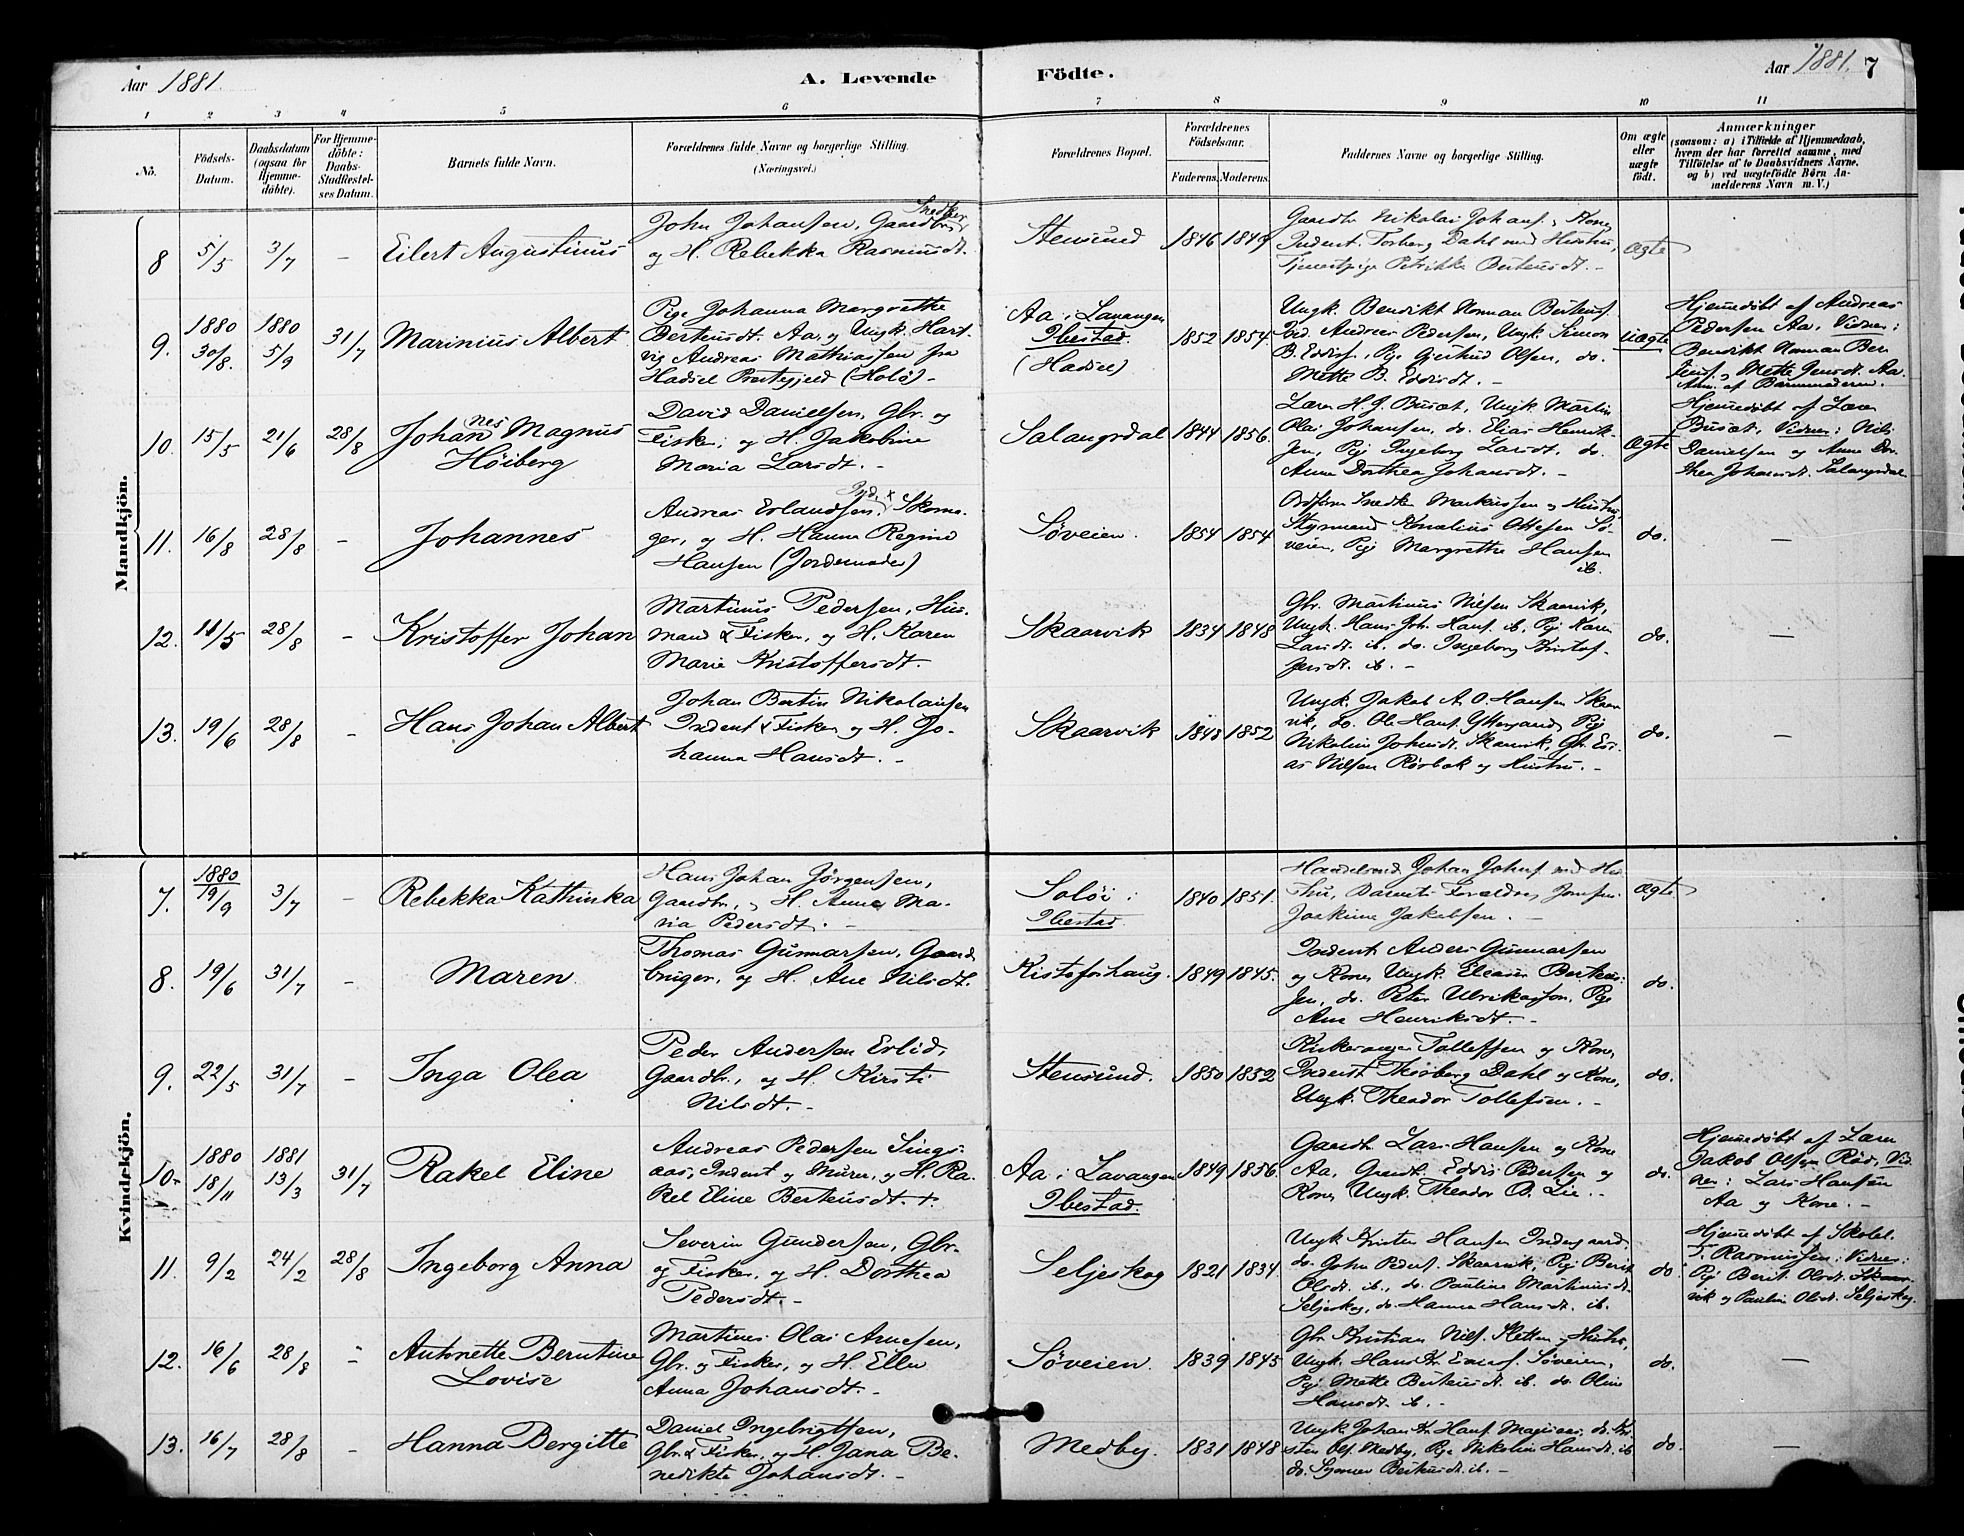 Aar 1881.
A. Levende Födte.
Aar 1881. 7
1 2 3 4 5 6 7 8 9 10 11
No.
Födsels-Datum.
Daabsdatum (ogsaa for Hjemme-döbte).
For Hjemme-döbte: Daabs-Stadfæstel-ses Datum.
Barnets fulde Navn.
Forældrenes fulde Navne og borgerlige Stilling.
(Næringsvei.)
Forældrenes Bopæl.
Forældrenes Födselsaar.
Faderens. Moderens.
Faddernes Navne og borgerlige Stilling.
Om ægte eller uægte födt.
Anmærkninger
(saasom: a) i Tilfælde af Hjemmedaab,
hvem der har forrettet samme, med
Tilföielse af to Daabsvidners Navne,
og b) ved uægtefödte Börn An-
melderens Navn m. V.)
Mandkjön.
8 5/5 3/7 - Eilert Augustinus
John Johansen, Gaardbr. Snedker
og H. Rebekka Rasmusdt.
Stensund 1846 1849
Gaardbr. Nikolai Johans. Kone,
Inderst Torberg Dahl med Hustru,
Tjenestpige Petrikke Berteusdt. -
Ægte
9. 1880 30/8. 1880 5/9 31/7 Marinius Albert
Pige Johanna Margrethe
Berteusdt. Aa, og Ungk. Hart-
vig Andreas Mathiassen fra
Hadsel Præstegjeld (Holø) -
Aa i Lavangen
Ibestad.
(Hadsel)
1852 1854
Ungk. Benedikt Norman Bertheus.
Andreas Pedersen, Ungk. Simon
B. Eddisf., Pige Gjertrud Olsen, do.
Mette B. Eddisdt. -
Uægte
Hjemmedøbt af Andreas
Pedersen Aa, Vidner:
Benedikt Norman Ber
teusf. og Mette Jensdt. Aa.
Anm. af Barnemoderen.
10. 15/5 21/6 28/8 Johannes Magnus
Höiberg
David Danielsen, Gbr. og
Fisker, og H. Jakobine
Maria Larsdt. -
Salangsdal 1844 1856.
Lærer H. J. Busæt, Ungk. Martin
Olai Johansen, do. Elias Henrik-
sen, Pige Ingeborg Larsdt. do.
Anne Dorthea Johansdt. -
Ægte
Hjemmedøbt af Lærer
Busæt, Vidner: Nils
Danielsen og Anne Dor-
thea Johansdt. Salangsdal
11. 16/8 28/8 - Johannes
Andreas Erlandsen, Skoma-
ger, og H. Hanna Regine
Hansen (Jordemoder)
Søveien. 1854 1854
Ordfører Snedker Markussen og Hustru,
Styrmand Kornelius Ottesen Sø-
veien, Pige Margrethe Hansen
ib.
do. -
12. 11/5 28/8 - Kristoffer Johan
Martinus Pedersen, Hus-
mand & Fisker, og H. Karen
Marie Kristoffersdt.
Skaarvik 1834 1848
Gbr. Martinus Nilsen Skaarvik,
Ungk. Hans Joh. Hans. ib. Pige Karen
Larsdt. ib. do. Ingeborg Kristof-
fersdt. ib. -
do. -
13. 19/6 28/8 - Hans Johan Albert
Johan Bertin Nikolaisen
Inderst & Fisker, og H. Jo-
hanna Hansdt. -
Skaarvik 1848 1852
Ungk. Jakob A. O. Hansen Skaar
vik, do. Ole Hans. Yttergaard, Pige
Nikoline Johnsdt. Skaarvik, Gbr. Es-
as Nilsen Rørbæk og Hustru. -
do. -
Kvindekjön.
7. 1880 19/9 3/7 - Rebekka Kathinka
Hans Johan Jörgensen,
Gaardbr., og H. Anne Ma-
ria Pedersdt. -
Soløi i
Ibestad.
1840 1851.
Handelsmd. Johan Johns. med Hu-
stru, Barnets Forældre, Jomfru
Joakime Jakobsen. -
Ægte
8. 19/6 31/7 - Maren
Thomas Gunnarsen, Gaard
bruger, og H. Ane Nilsdt.
Kistofershaug. 1849 1845.
Inderst Anders Gunnarsen
og Kone, Ungk. Eleasar Bertheus-
sen, do. Peter Ulriksson, Pige
Ane Henriksdt. -
do.
9. 22/5 31/7 - Inga Olea
Peder Andersen Erlid,
Gaardbr., og H. Kirsti
Nilsdt. -
Stensund. 1850 1852
Kirkesanger Tollefsen og Kone,
Inderst Thorberg Dahl og Kone,
Ungk. Theodor Tollefsen. -
do.
10. 1880 18/11 1881 13/3 31/7 Rakel Eline
Andreas Pedersen Sings-
aas, Inderst og Murer, og H. Ra-
kel Eline Berteusdt. +
Aa i Lavangen
Ibestad.
1849 1856.
Gaardbr. Lars Hansen og Kone
Aa, Gaardb. Eddis Pedersen og
Kone, Ungk. Theodor O. Lie. -
do.
Hjemmedøbt af Lærer
Jakob Olsen Rød, Vid
ner: Lars Hansen
Aa og Kone. -
11. 9/2 24/2 28/8 Ingeborg Anna
Severin Gundersen, Gbr.
og Fisker, og H. Dorthea
Pedersdt. -
Seljeskog 1821 1834.
Ungk. Kristen Hansen Indergaard,
do. John Peders. Skaarvik, Pige Berit
Olsdt. ib., do. Pauline Martinusdt.
Seljeskog, do. Hanna Hansdt. ib.
do.
Hjemmedøbt af Skolel.
T. Rasmussen: Vidner:
Pige Berit Olsdt. Skaar-
vik og Pauline Olsdt. Seljeskog.
12. 16/6 28/8 - Antonette Berntine
Lovise
Martinus Olai Arnesen,
Gbr. og Fisker, og H. Ellen
Anna Johansdt. -
Søveien. 1839 1845
Gbr. Kristian Nils. Sletten og Hustru,
Ungk. Hans Kr. Enoks. Søveien,
Pige Mette Berteusdt. ib. do. Oline
Hansdt. ib. -
do. -
13. 16/7 28/8 - Hanna Bergitte
Daniel Ingebrigtsen,
Gbr. & Fisker, og H. Jana Be-
nedikte Johansdt. -
Medby. 1831 1848
Ungk. Johan Kr. Hans. do. Kri-
sten Ols. Medby, Pige Nikoline Hansdt. ib
do. Berteusdt. ib. -
do. -